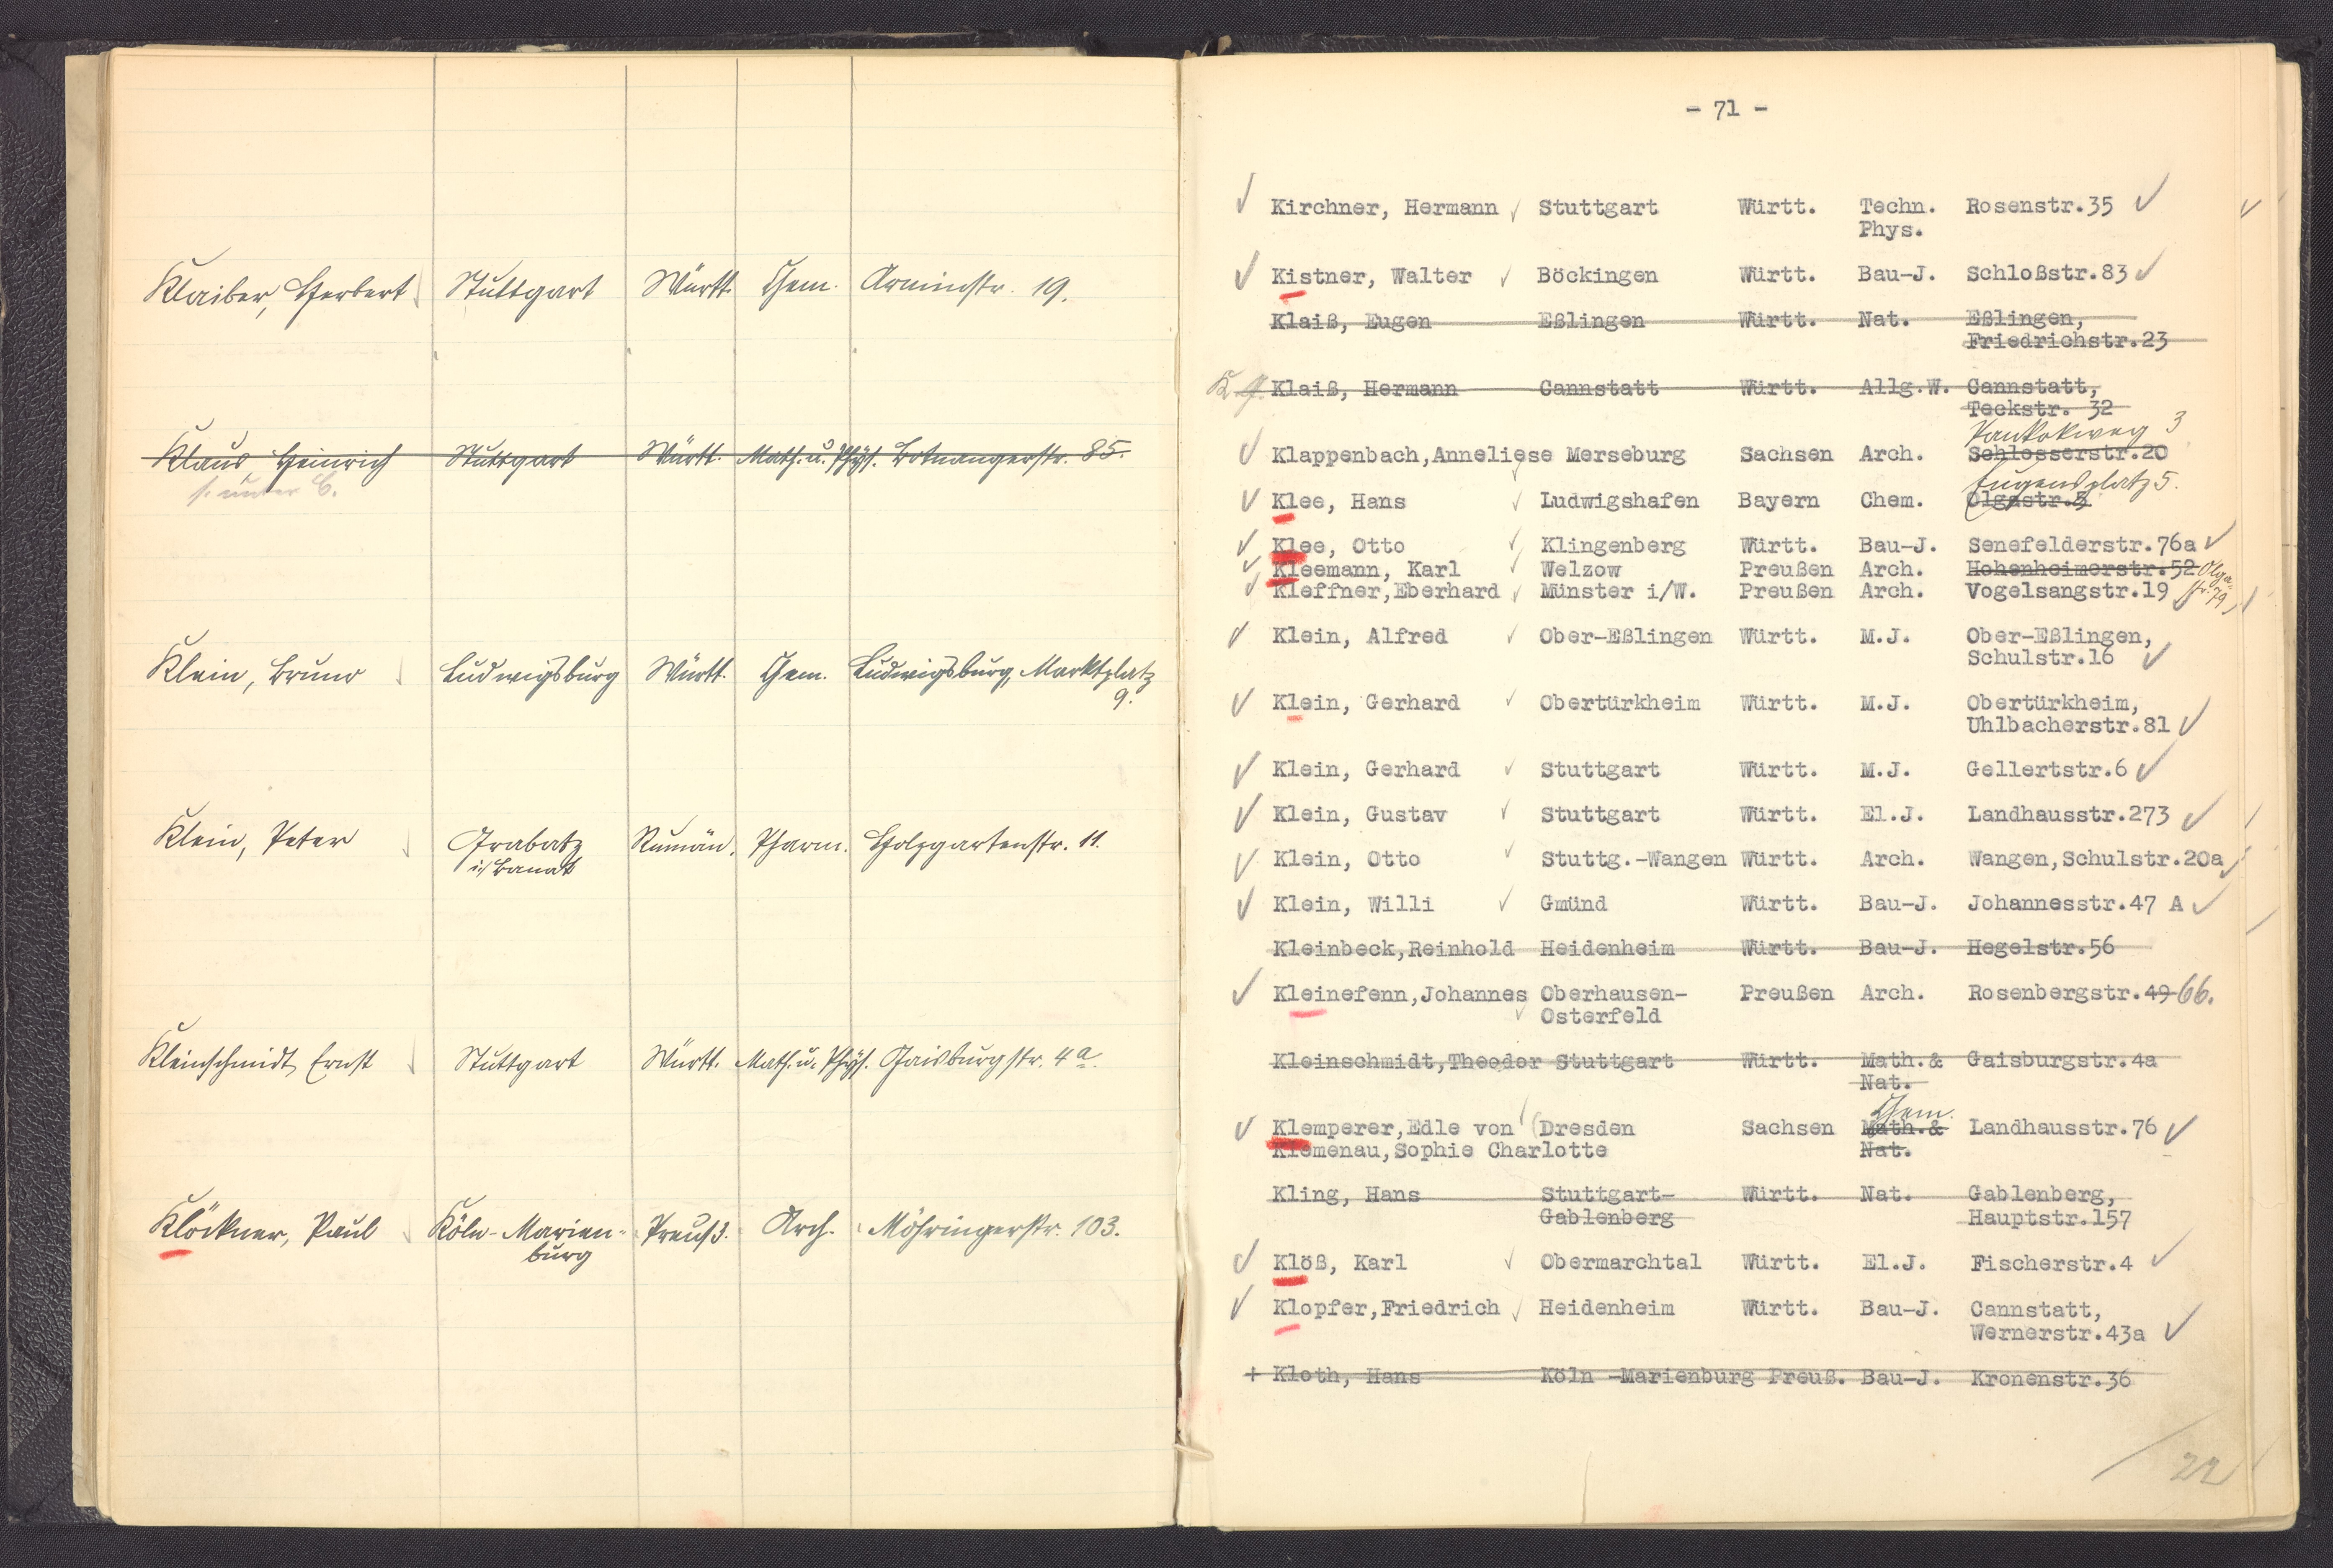 Klaiber, Herbert Stuttgart Württ. Chem. Arminstr. 19.
Klaus, Heinrich Stuttgart Württ. Math. u. Phys. Botnangerstr. 85.
s. unter C.
Klein, Bruno Ludwigsburg Württ. Chem. Ludwigsburg, Marktplatz
9.
Klein, Peter Grabatz Rumän. Pharm. Holzgartenstr. 11.
i/Banat
Kleinschmidt, Ernst Stuttgart Württ. Math. u. Phys. Gaisburgstr. 4a.
Klöckner, Paul Köln-Marien- Preuß. Arch. Möhringerstr. 103.
burg
- 71 -
Kirchner, Hermann Stuttgart Württ. Techn. Rosenstr.35
Phys.
Kistner, Walter Böckingen Württ. Bau-J. Schloßstr.83
Klaiß, Eugen Eßlingen Württ. Nat. Eßlingen,
Friedrichstr.23
Klaiß, Hermann Cannstatt Württ. Allg.W. Cannstatt,
Teckstr. 32
Pankokweg 3
Klappenbach,Anneliese Merseburg Sachsen Arch. Schlosserstr.20
Eugensplatz 5.
Klee, Hans Ludwigshafen Bayern Chem. Olgastr.5
Klee, Otto Klingenberg Württ. Bau-J. Senefelderstr.76a
Kleemann, Karl Welzow Preußen Arch. Hohenheimerstr.52 Olga-
str. 79
Kleffner,Eberhard Münster i/W. Preußen Arch. Vogelsangstr.19
Klein, Alfred Ober-Eßlingen Württ. M.J. Ober-Eßlingen,
Schulstr.16
Klein, Gerhard Obertürkheim Württ. M.J. Obertürkheim,
Uhlbacherstr.81
Klein, Gerhard Stuttgart Württ. M.J. Gellertstr.6
Klein, Gustav Stuttgart Württ. El.J. Landhausstr.273
Klein, Otto Stuttg.-Wangen Württ. Arch. Wangen,Schulstr.20a
Klein, Willi Gmünd Württ. Bau-J. Johannesstr.47 A
Kleinbeck,Reinhold Heidenheim Württ. Bau-J. Hegelstr.56
Kleinefenn,Johannes Oberhausen- Preußen Arch. Rosenbergstr.49 66.
Osterfeld
Kleinschmidt,Theodor Stuttgart Württ. Math.& Gaisburgstr.4a
Nat.
Chem.
Klemperer,Edle von (Dresden Sachsen Math.& Landhausstr.76
Klemenau,Sophie Charlotte Nat.
Kling, Hans Stuttgart- Württ. Nat. Gablenberg,
Gablenberg Hauptstr.157
Klöß, Karl Obermarchtal Württ. El.J. Fischerstr.4
Klopfer,Friedrich Heidenheim Württ. Bau-J. Cannstatt,
Wernerstr.43a
+ Kloth, Hans Köln -Marienburg Preuß. Bau-J. Kronenstr.36
22